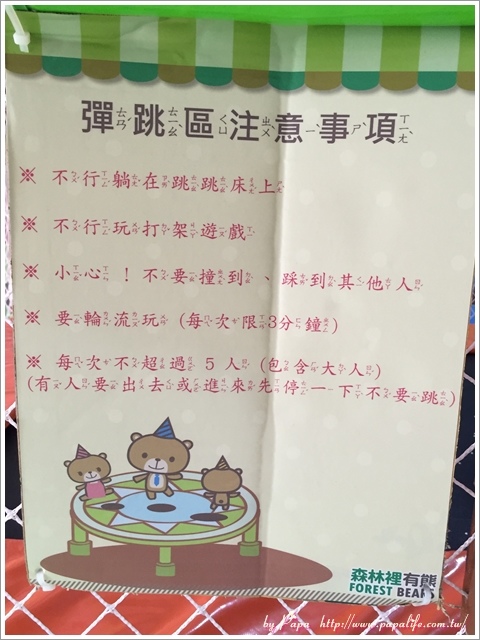 彈跳區注意事項
※ 不行躺在跳跳床上
※ 不行玩打架遊戲
※ 小心！不要撞到、踩到其他人
※ 要輪流玩 (每次限3分鐘)
※ 每次不超過 5 人 (包含大人)
(有人要出去或進來先停一下不要跳)
森林裡有熊
FOREST BEARS
by Papa http://www.papalife.com.tw/